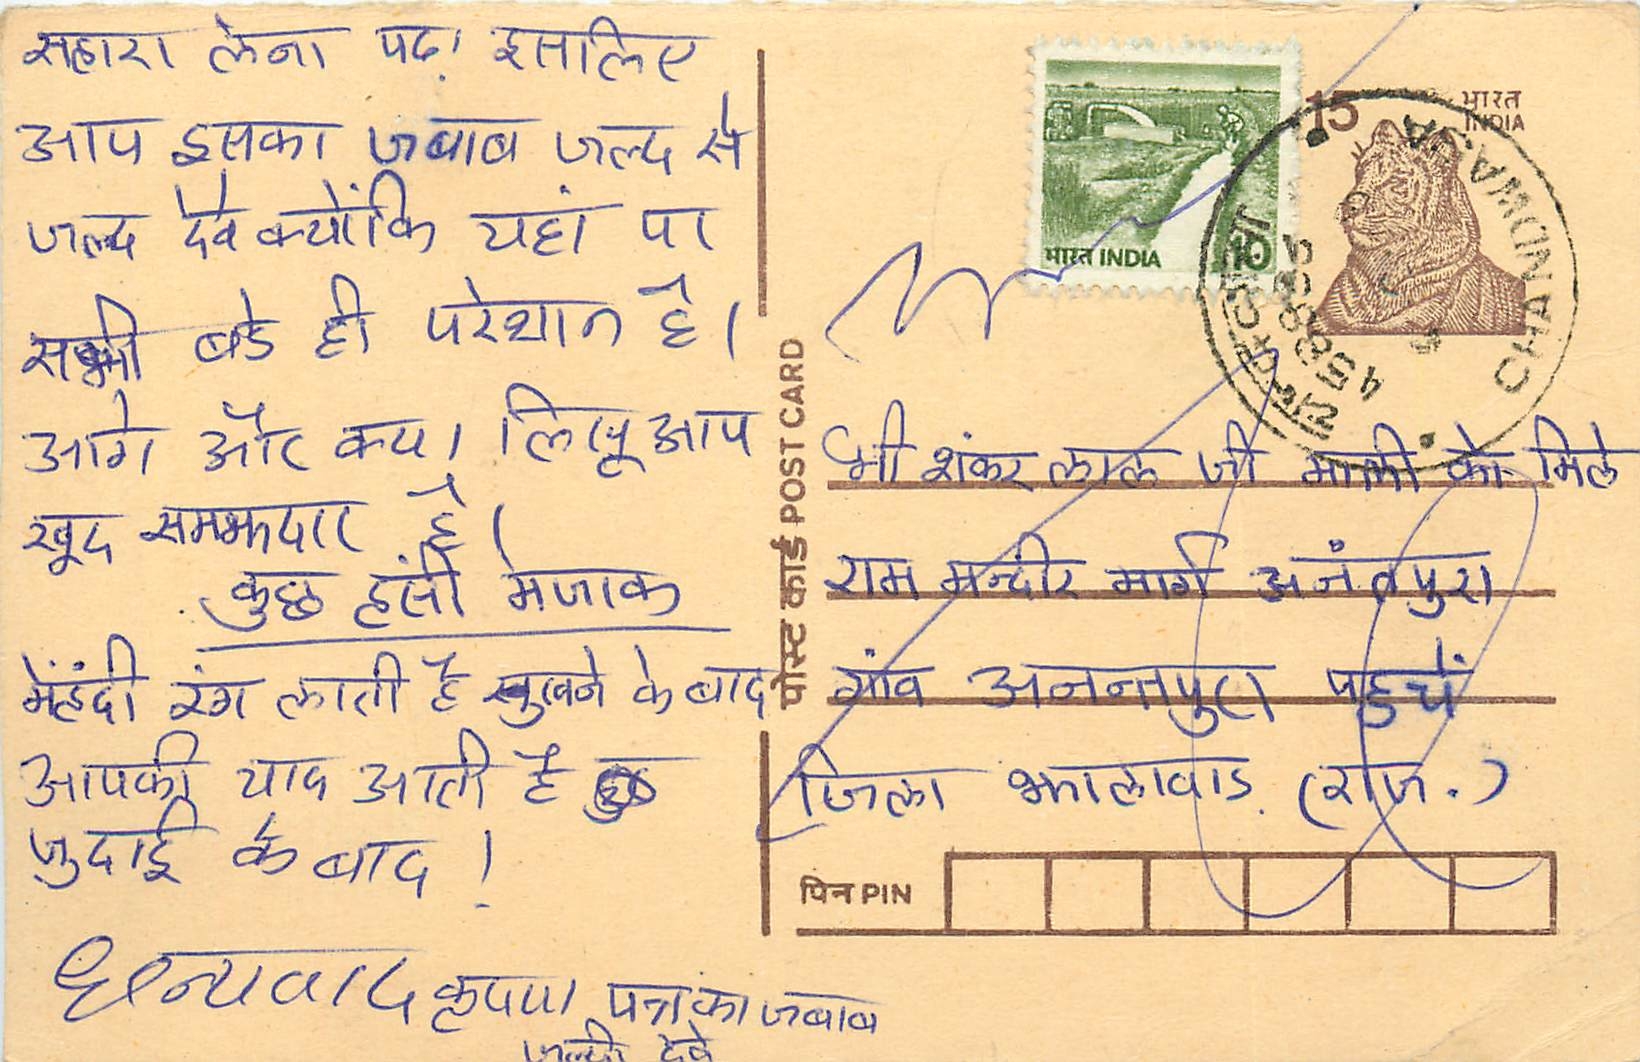 सहारा लेना पढ़ा इसलिए
आप इसका जबाब जल्द से
जल्द देवे क्योंकि यहां पर
सभी बडे ही परेशान है।
आगे और क्या लिखू आप
खूद समझदार है।
कुछ हंसी मजाक
मेहंदी रंग लाती है सुखने के बाद
आपकी याद आती है
जुदाई के बाद !
धन्यवाद कृपया पत्र का जबाब
जल्दी देवे
पोस्ट कार्ड POST CARD
भारत INDIA 10
15 भारत
INDIA
CHANDWASA
458883
श्री शंकर लाल जी माली को मिले
राम मन्दीर मार्ग अनंतपुरा
गांव अनन्तपुरा पहुचें
जिला झालावाड (राज.)
पिन PIN